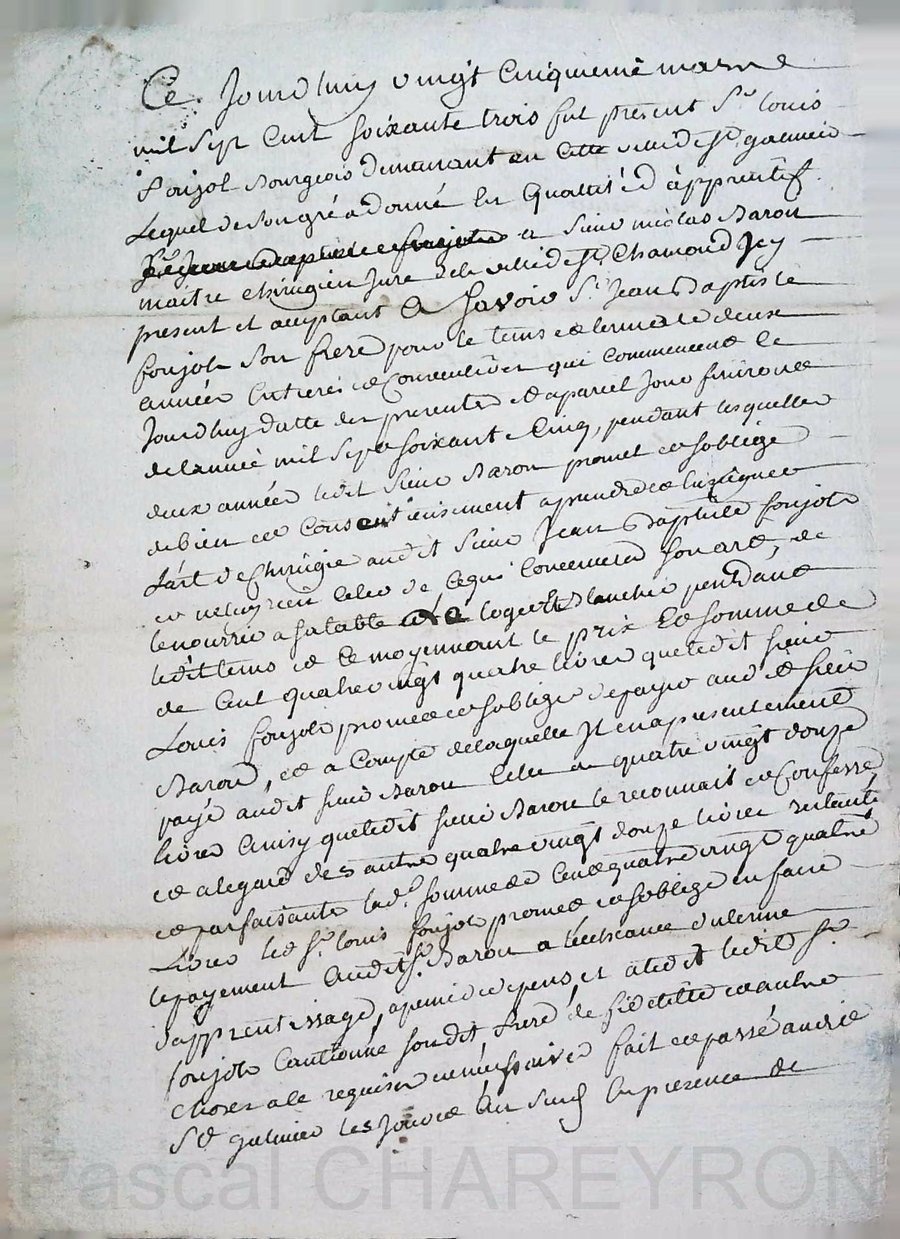 Ce Jourdhuy vingt Cinquieme mars
mil sept cent soixante trois fut présent Sr louis
foujols Bourgeois demeurant en cette ville de St galmier
Lequel de son gré a donné En Qualitté d'apprentif
a sieur nicolas Baron
maitre chirugien Juré de la ville de St Chamond Icy
présent et acceptant A Savoir Sr Jean Baptiste
foujols son frere pour le tems et terme de deux
année Entieres et Consecutives qui Commencent Ce
Jourdhuy datte des presentes et a pareil Jour finiront
de lannée mil sept soixante Cinq, pendant lesquelles
deux année ledit sieur Baron promet et soblige
de bien et Consentieusement aprendre et Enseigner
Lart de chirugie audit sieur Jean Baptiste foujols
et ne luy rien Celer de Cequi Concernera son art, de
le nourrir a sa table et le loger Et Blanchir pendant
ledit tems et Ce moyennant le prix Et somme de
de Cent quatre vingt quatre livres que ledit sieur
Louis foujols promet et soblige de payer audit sieur
Baron, et a Compte de laquelle Il en a presentement
payé audit sieur Baron Celle de quatre vingt douze
livres Ainsy que ledit sieur Baron le reconnait et Confesse
et a legard des autre quatre vingt douze livres restante
et parfaisante lad. somme de Cent quatre vingt quatre
Livres led Sr louis foujols promet et soblige en faire
le payement Audit Sr Baron a léchéance du terme
d'apprentissage, a peine de depens, et a ledit ledit Sr
foujols Cautionné son dit frere de fidelitté et autre
choses a le requises et nécessaires fait et passé audit
St galmier les Jour et An susd En presence de
Pascal CHAREYRON